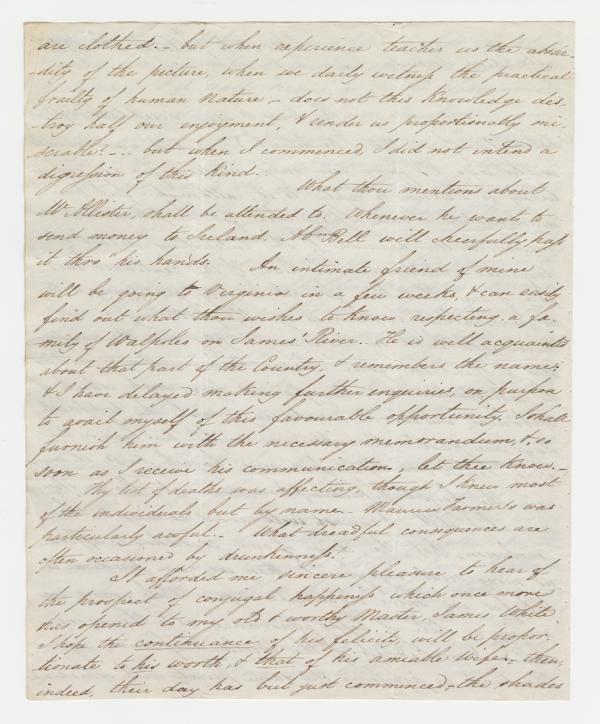 are clothed. – but when experience teaches us the absur-
-dity of the picture, when we daily witness the practical
frailty of human nature, – does not this knowledge des-
troy half our enjoyment, & render us proportionably mi-
serable? – . but when I commenced, I did not intend a
digression of this kind. .
What thou mentions about
McAllister, shall be attended to. Whenever he wants to
send money to Ireland, Abm Bell will cheerfully pass
it thro' his hands. An intimate friend of mine
will be going to Virginia in a few weeks, & can easily
find out what thou wishes to know respecting a fa-
mily of Walpoles on James' River. He is well acquainted
about that part of the Country, & remembers the name;
& I have delayed making further enquiries, on purpose
to avail myself of this favourable opportunity. I shall
furnish him with the necessary memorandum, & so
soon as I receive his communication, let thee know. –
Thy list of deaths was affecting, though I knew most
of the individuals but by name. – Maurice Farmer's was
particularly awful. – What dreadful consequences are
often occasioned by drunkenness!
It afforded me sincere pleasure to hear of
the prospect of conjugal happiness which once more
has opened to my old & worthy Master James White.
I hope the continuance of his felicity will be propor-
tionate to his worth, & that of his amiable wife; – then,
indeed, their day has but just commenced, – the shades